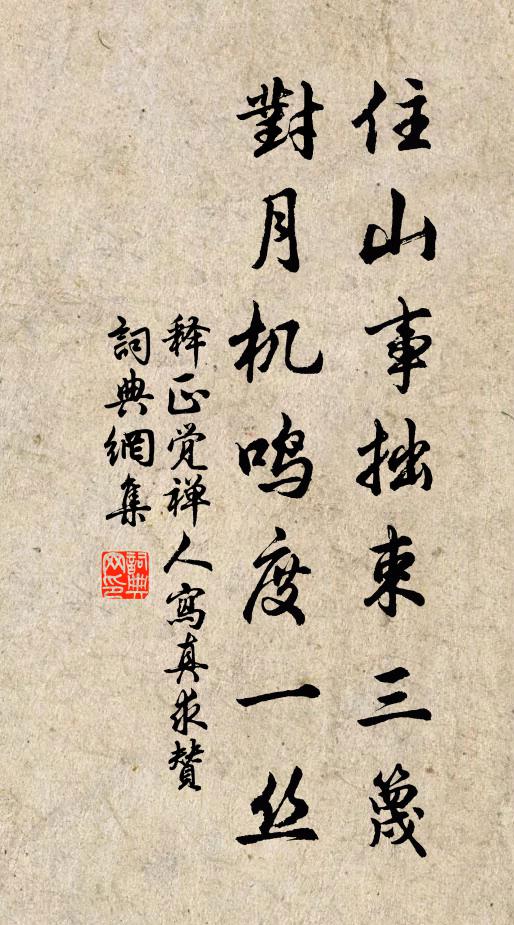 住山事拙束三篾
對月机鸣度一丝
释正觉禅人寫真求賛
詞典網集
詞典网印